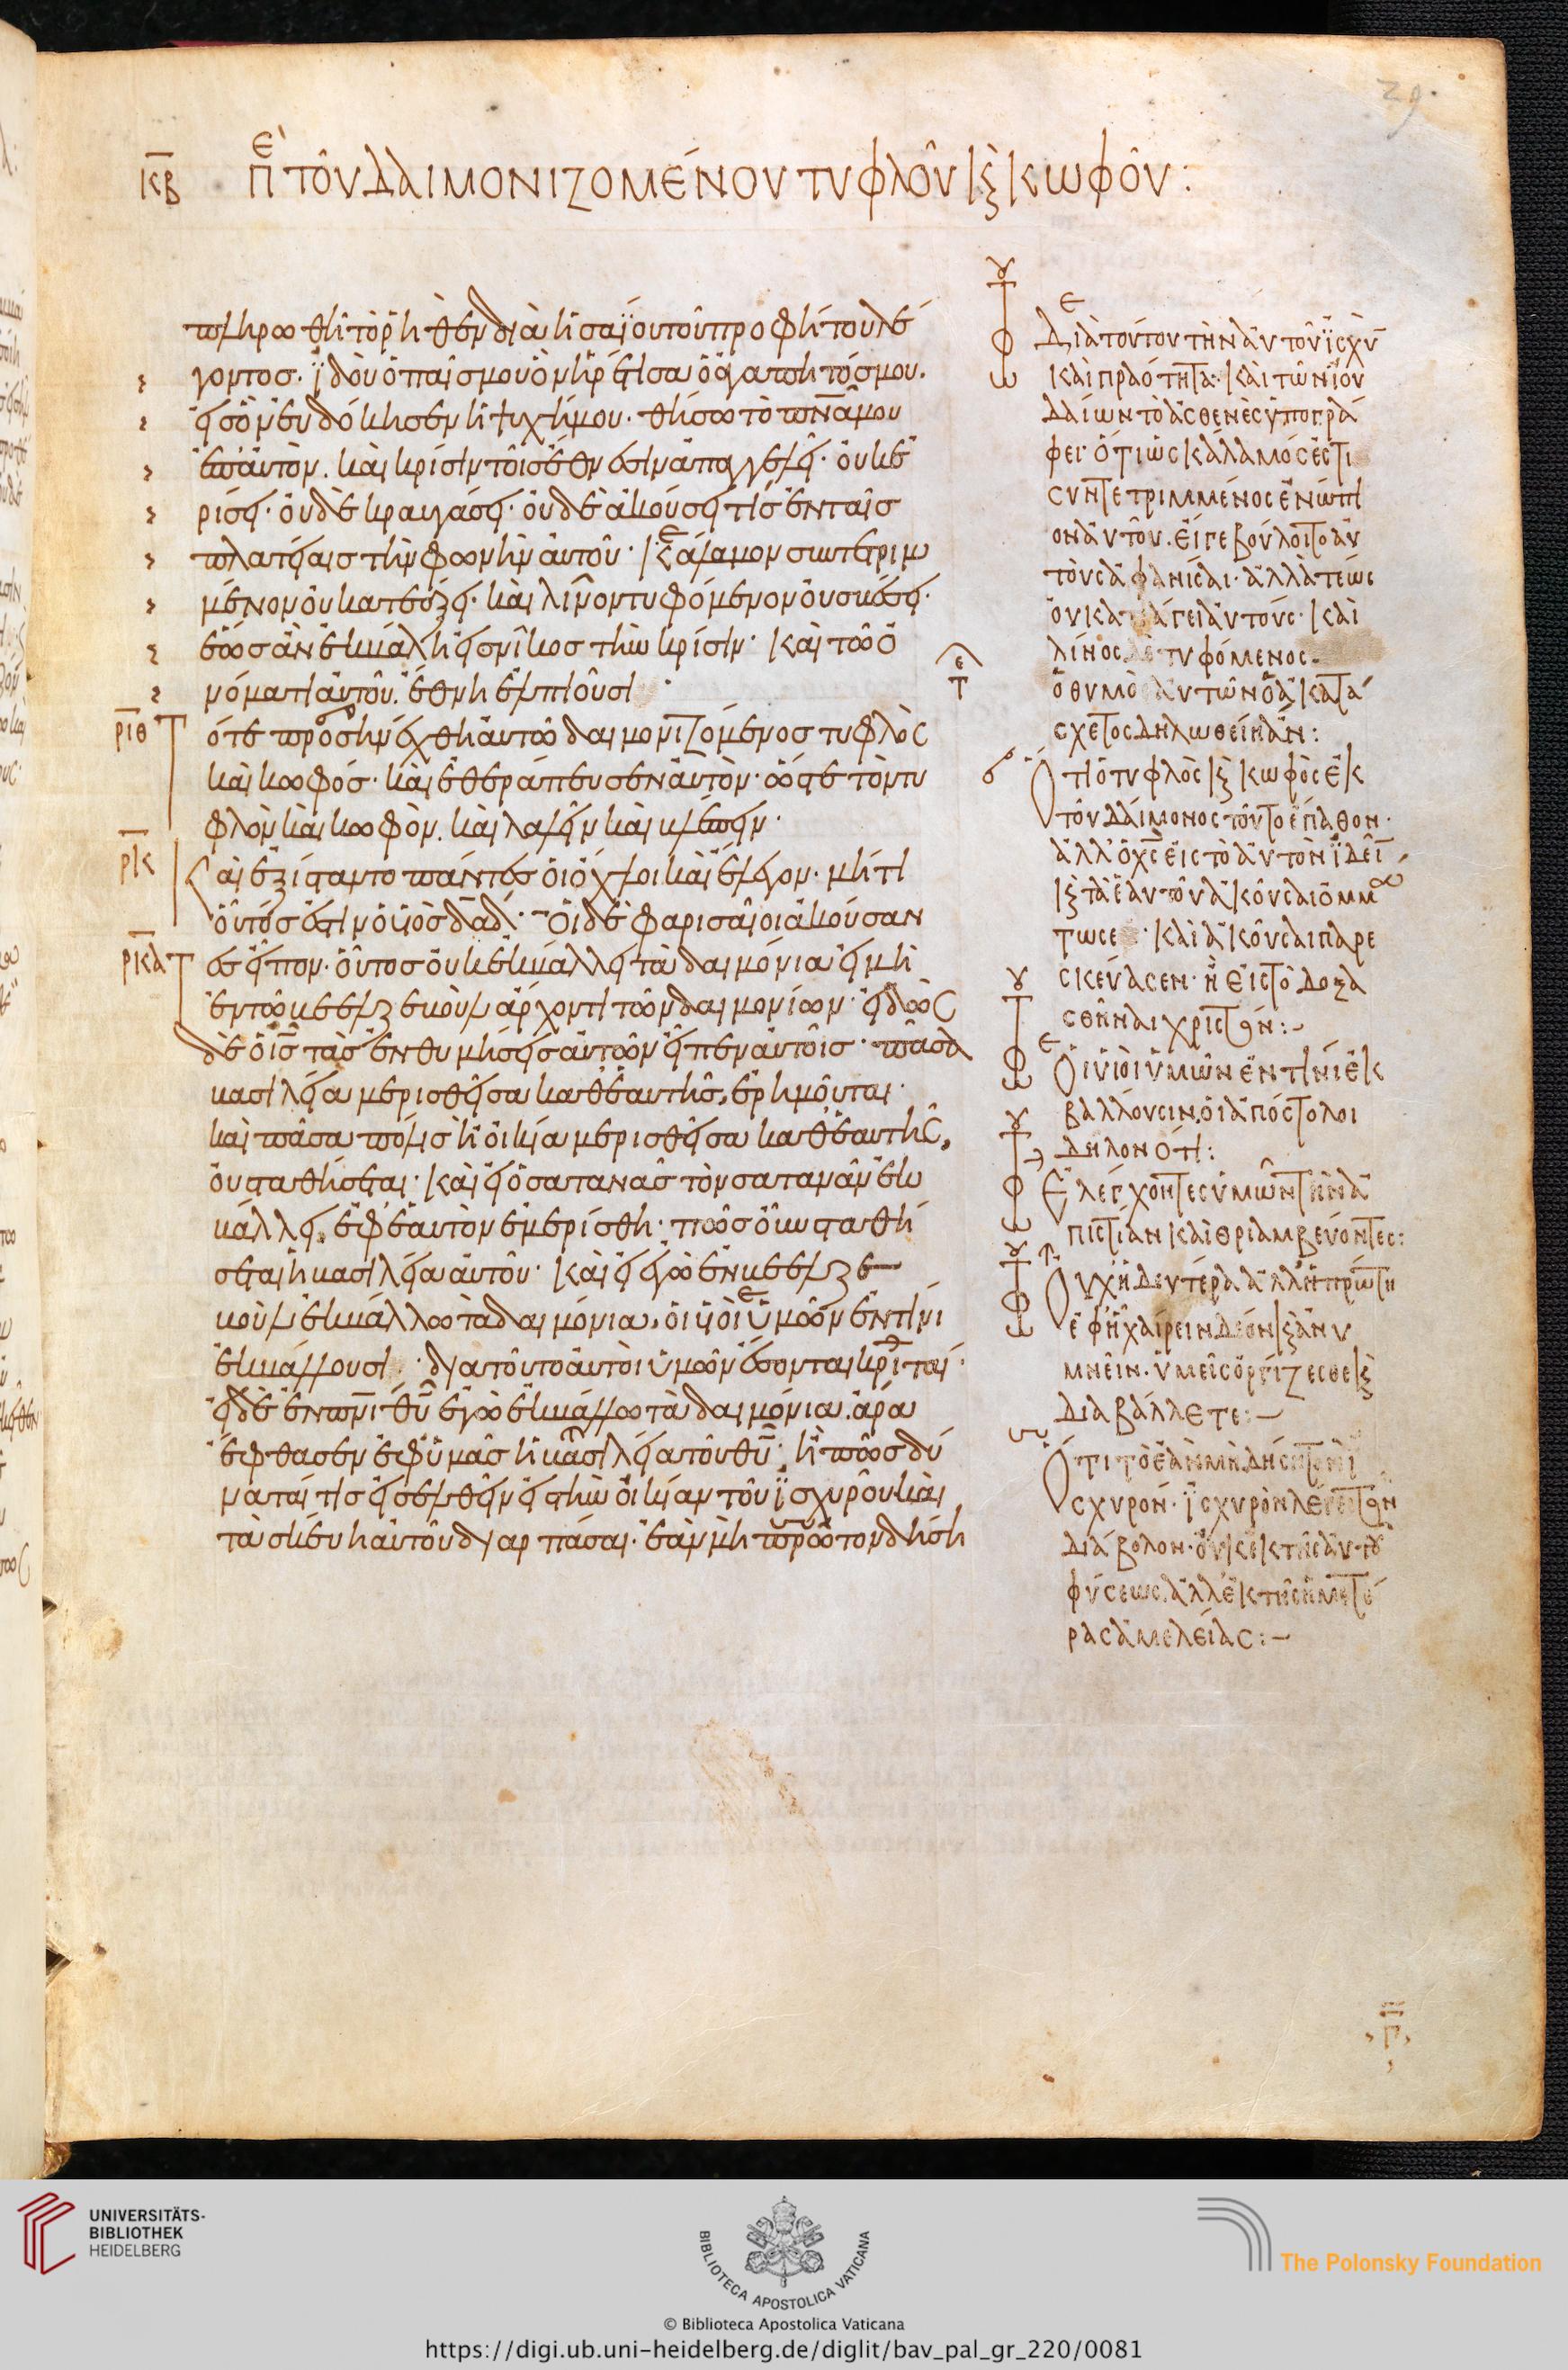 29.
κβ πε τοῦ δαιμονιζομένου τυφλοῦ κὲ κωφοῦ:
πληρωθῆ τὸ ῥηθὲν διὰ ἠσαΐου τοῦ προφήτου λέ
γοντος. ϊδοὺ ὁ παῖς μου ὃν ἡρέτισα ὁ ἀγαπητός μου.
εἰς ὃν εὐδόκησεν ἡ ψυχή μου. θήσω τὸ πνᾶ μου
ἐπ' αὐτὸν. καὶ κρίσιν τοῖς ἔθνεσιν ἀπαγγελεῖ. οὐκ ἐ
ρίσει. οὐδὲ κραυγάσει. οὐδὲ ἀκούσει τίς ἐν ταῖς
πλατείαις τὴν φωνὴν αὐτοῦ. κάλαμον συντετριμ
μένον οὐ κατεάξει. καὶ λῖνον τυφόμενον οὐ σβέσει.
ἕως ἂν ἐκβάλη εἰς νῖκος τὴν κρίσιν. καὶ τῶ ὀ
νόματι αὐτοῦ ἔθνη ἐλπιοῦσι
ριθ ότε προσηνέχθη αὐτῶ δαιμονιζόμενος τυφλὸς
καὶ κωφός. καὶ ἐθεράπευσεν αὐτὸν. ὥστε τὸν τυ
φλὸν καὶ κωφὸν. καὶ λαλεῖν καὶ βλέπειν.
ρκ Και ἐξίσταντο πάντες οἱ ὄχλοι καὶ ἔλεγον. μήτι
οὗτός ἐστιν ὁ υἱὸς δαδ. Οἱ δὲ φαρισαῖοι ἀκούσαν
ρκα τες εἶπον. οὗτος οὐκ ἐκβάλλει τὰ δαιμόνια εἰ μὴ
ἐν τῶ βεελζεβοὺλ ἄρχοντι τῶν δαιμονίων. εἰδὼς
δὲ ὁ ις τὰς ἐνθυμήσεις αὐτῶν εἶπεν αὐτοῖς. πᾶσα
βασιλεία μερισθεῖσα καθ' ἑαυτῆς, ἐρημοῦται.
καὶ πᾶσα πόλις ἢ οἰκία μερισθεῖσα καθ' ἑαυτῆς,
οὐ σταθήσεται. καὶ εἰ ὁ σατανᾶς τὸν σατανᾶν ἐκ
βάλλει, ἐφ' ἑαυτὸν ἐμερίσθη. πῶς οὖν σταθή
σεται ἡ βασιλεία αὐτοῦ. καὶ εἰ ἐγὼ ἐν βεελζε
βοὺλ ἐκβάλλω τὰ δαιμόνια, οἱ υἱοὶ ὑμῶν ἐν τίνι
ἐκβάλλουσι. διατοῦτο αὐτοὶ ὑμῶν ἔσονται κριταί.
εἰ δὲ ἐν πνι θυ ἐγὼ ἐκβάλλω τὰ δαιμόνια. ἄρα
ἔφθασεν ἐφ' ὑμᾶς ἡ βασιλεία τοῦ θυ. ἢ πῶς δύ
ναται τὶς εἰσελθεῖν εἰς τὴν οἰκίαν τοῦ ϊσχυροῦ καὶ
τὰ σκεύη αὐτοῦ διαρπάσαι. ἐὰν μὴ πρῶτον δήση
Διὰ τούτου τὴν αὐτοῦ ϊσχὺν
καὶ πραότητα. καὶ τῶν ιου
δαίων τὸ ἀσθενὲς ὑπογρά
φει. ὅτι ὡς κάλαμός ἐστι
συντετριμμένος ἐνώπι
ον αὐτοῦ. εἴγε βούλοιτο αὐ
τοὺς ἀφανίσαι. ἀλλὰ τέως
οὐ κατάγει αὐτούς. καὶ
λίνος τυφόμενος.
ὁ θυμὸ αὐτῶν ὁ ἀκατά
σχετος δηλωθείη ἂν:
Ότι ὁ τυφλὸς κὲ κωφὸς ἐκ
τοῦ δαίμονος τοῦτο ἔπαθον.
ἀλλ' ὁ χς εἰς τὸ αὐτὸν ϊδεῖ
κὲ τὰ ἑαυτοῦ ἀκοῦσαι ὀμμ
τωσε καὶ ἀκοῦσαι παρε
σκεύασεν. ἢ εἰς τὸ δοξα
σθῆναι χριστὸν:
Οἱ υἱοὶ ὑμῶν ἐν τίνι ἐκ
βάλλουσιν. οἱ ἀπόστολοι
δηλονότι:
Ἐλέγχοντες ὑμῶν τὴν ἀ
πιστίαν καὶ θριαμβεύοντες:
Οὐχ ἡ δευτέρα ἀλλ' ἡ πρώτη
ἐφ' ἧ χαίρειν δέον κὲ ἀνυ
μνεῖν. ὑμεῖς ὀργίζεσθε κὲ
διαβάλλετε:
Ότι τὸ ἐὰν μὴ δήση τὸν ϊ
σχυρόν. ϊσχυρὸν λέγει τὸν
διάβολον. οὐκ ἐκ τῆς αὐτοῦ
φύσεως. ἀλλ' ἐκ τῆς ἡμετέ
ρας ἀμελείας:
UNIVERSITÄTS-
BIBLIOTHEK
HEIDELBERG
BIBLIOTECA APOSTOLICA VATICANA
© Biblioteca Apostolica Vaticana
The Polonsky Foundation
https://digi.ub.uni-heidelberg.de/diglit/bav_pal_gr_220/0081